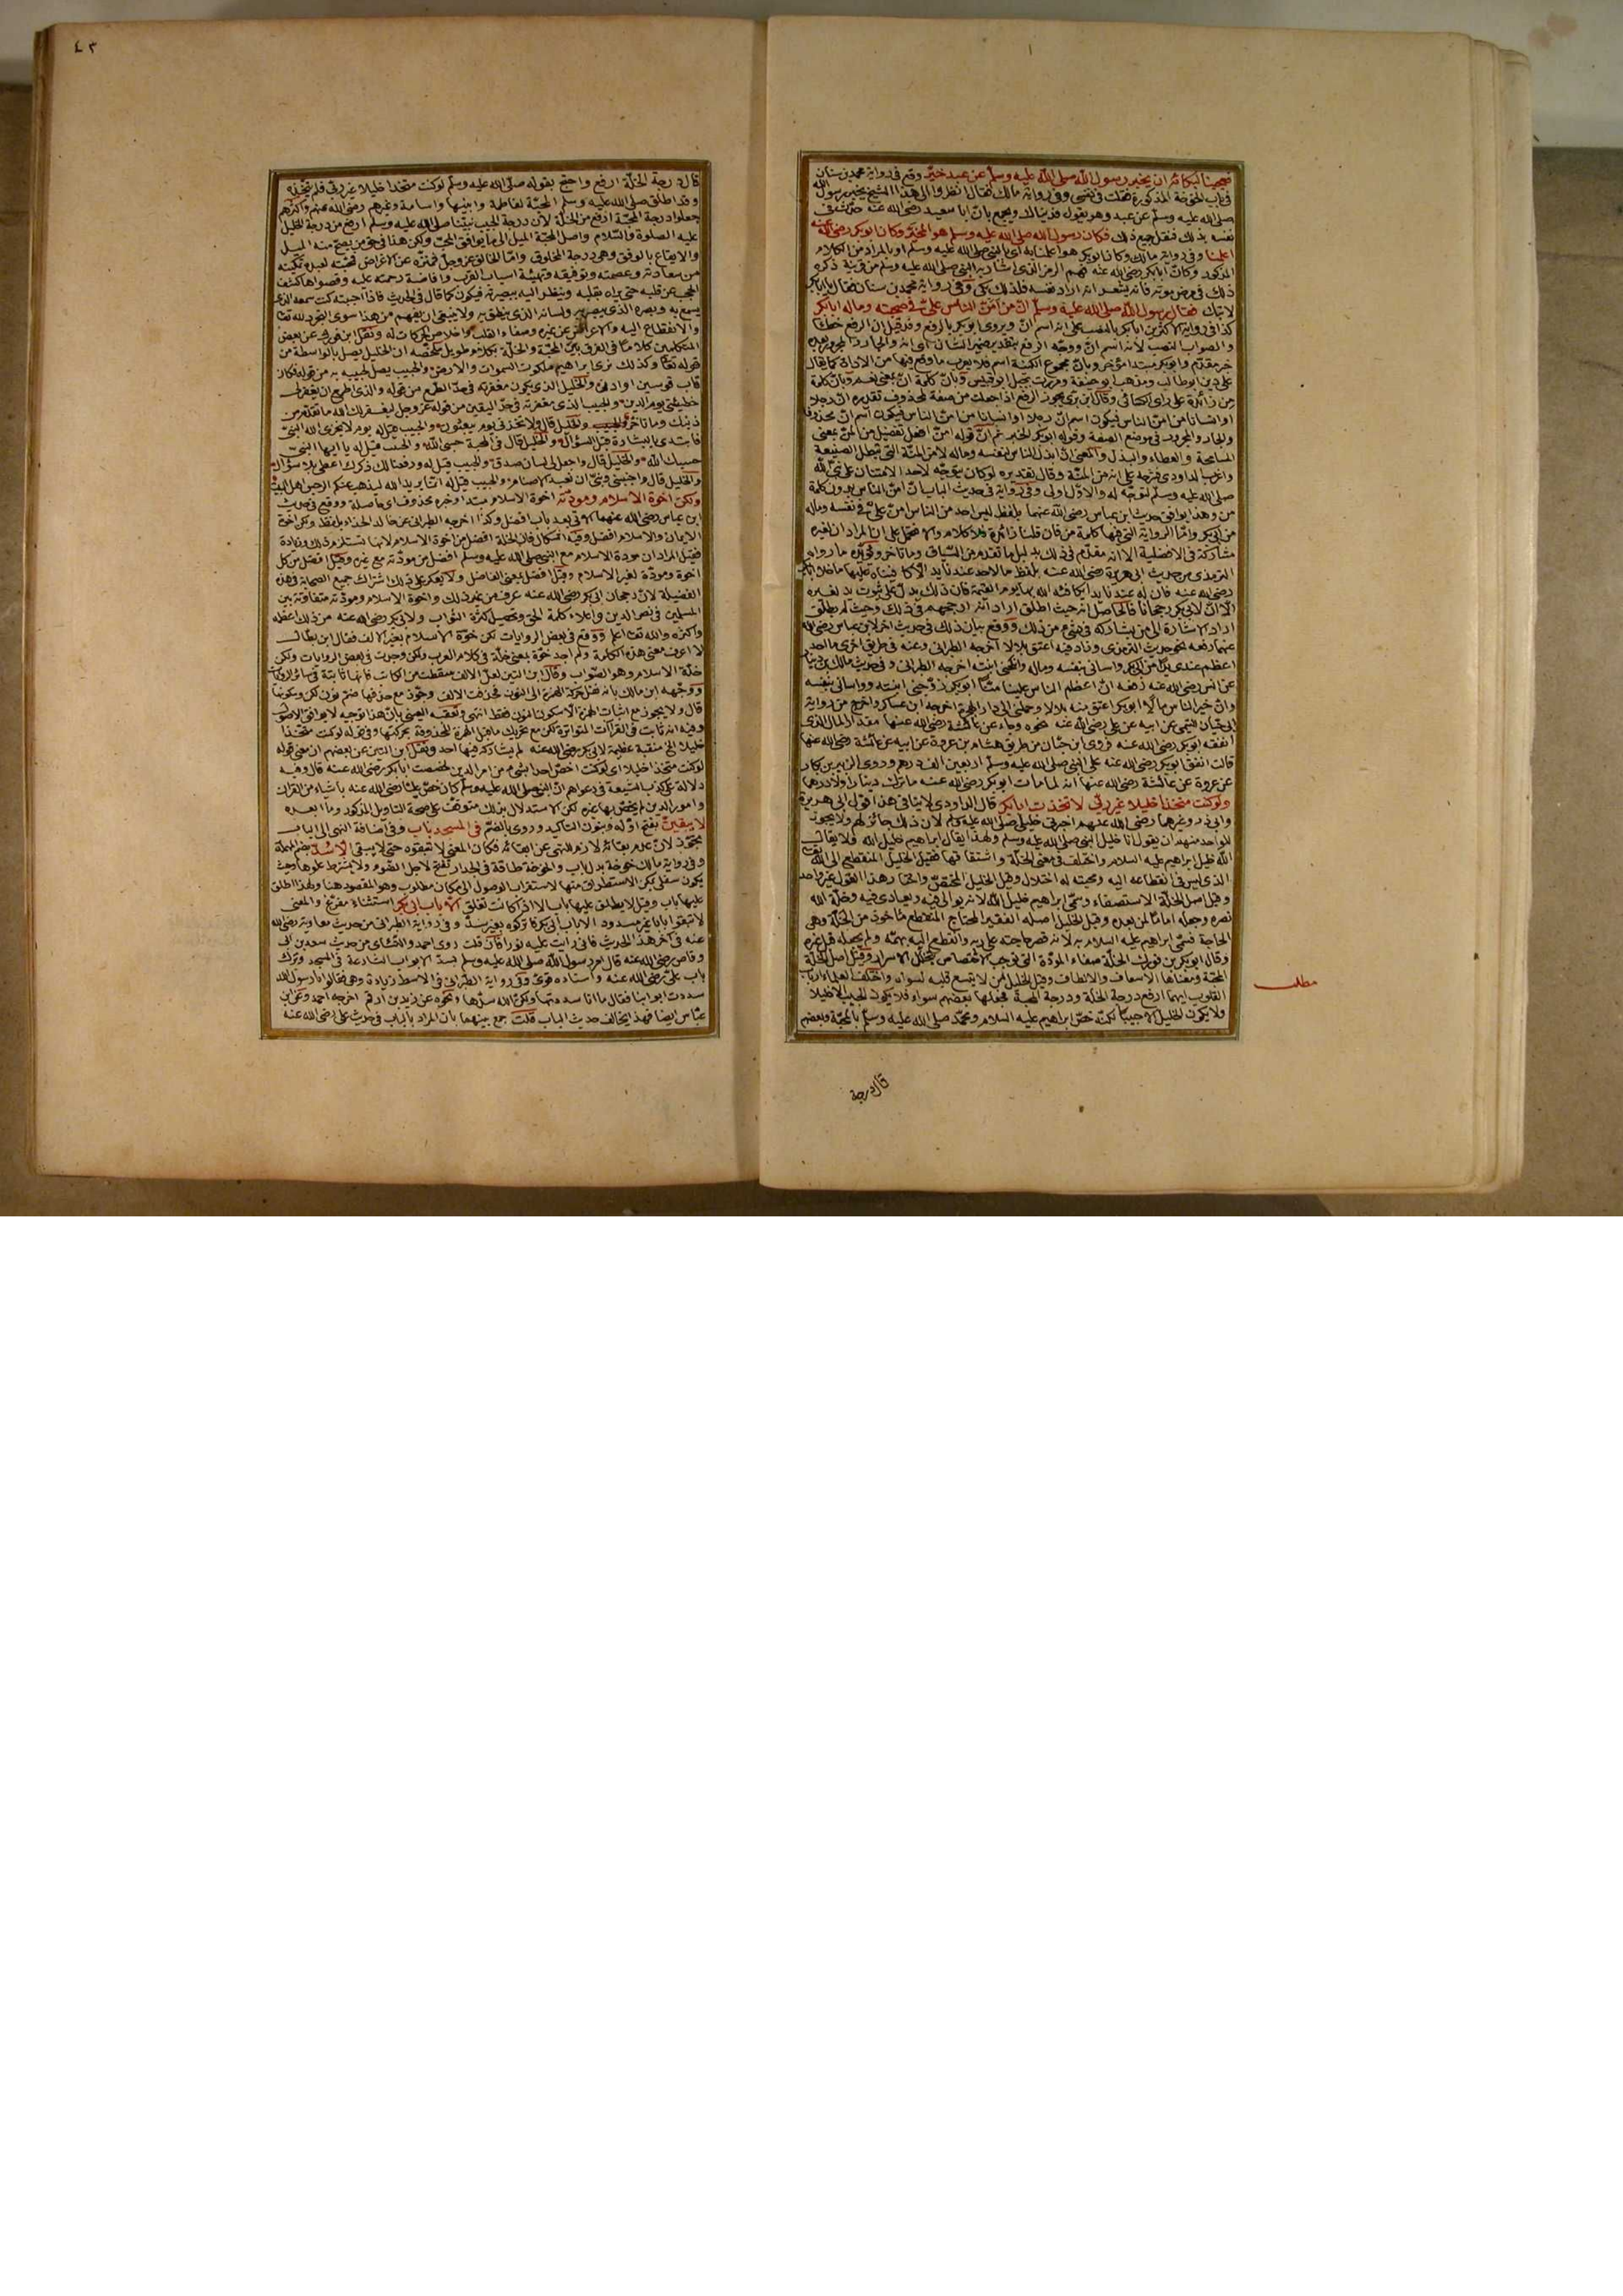 فعجبنا لبكائه ان يخبر رسول الله صلى الله عليه وسلم عن عبد خيّر وقع في رواية محمد بن سنان
في باب الخوخة المذكورة فقلت في نفسي وفي رواية مالك فقال انظروا الى هذا الشيخ يخبر رسول الله
صلى الله عليه وسلم عن عبد وهو يقول فديناك ويجمع بانّ ابا سعيد رضي الله عنه حدّث
نفسه بذلك فنقل جميع ذلك فكان رسول الله صلى الله عليه وسلم هو المخيّر وكان ابو بكر رضي الله عنه
اعلمنا وفي رواية مالك وكان ابو بكر هو اعلمنا به اي بالنبي صلى الله عليه وسلم او بالمراد من الكلام
المذكور وكان ابا بكر رضي الله عنه فهم الرمز الذي اشار به النبي صلى الله عليه وسلم من قرينة ذكره
ذلك في مرض موته فانه يشعر انه اراد نفسه فلذلك بكى وفي رواية محمد بن سنان فقال يا ابا بكر
لا تبك فقال رسول الله صلى الله عليه وسلم انّ من امنّ الناس عليّ في صحبته وماله ابا بكر
كذا في رواية الاكثرين ابا بكر بالنصب على انه اسم انّ ويروى ابو بكر بالرفع وقد قيل ان الرفع خطأ
والصواب النصب لانه اسم انّ ووجّه الرفع بتقدير ضمير الشان اي انه والجار والمجرور بعده
خبر مقدّم وابو بكر مبتدا مؤخر وبانّ مجموع الكنية اسم فلا يعرب ما وقع فيها من الاداة كما يقال
علي بن ابو طالب ومذهب ابو حنيفة ومررت بجبل ابو قبيس وبانّ كلمة انّ بمعنى نعم وبانّ كلمة
من زائدة على راي الكسائي وقال ابن بري يجوز الرفع اذا جعلت من صفة لمحذوف تقديره انّ رجلا
او انسانا من امنّ الناس فيكون اسم انّ رجلا او انسانا من امنّ الناس فيكون اسم انّ محذوفا
والجار والمجرور في موضع الصفة وقوله ابو بكر الخبر ثم انّ قوله امنّ افعل تفضيل من المنّ بمعنى
السماحة والعطاء والبذل والمعنى انّ ابذل الناس لنفسه وماله لا من المنّة التي تبطل الصنيعة
واغرب الداودي فشرحه على انه من المنّة وقال تقديره لو كان يتوجّه لاحد الامتنان على نبيّ الله
صلى الله عليه وسلم لتوجّه له والاوّل اولى وفي رواية في حديث الباب انّ امنّ الناس بدون كلمة
من وهذا يوافق حديث ابن عباس رضي الله عنهما بلفظ ليس احد من الناس امنّ عليّ في نفسه وماله
من ابي بكر وامّا الرواية التي فيها كلمة من فان قلنا زائدة فلا كلام والا فتحمل على ان المراد ان لغيره
مشاركة في الافضلية الا انه مقدّم في ذلك بدليل ما تقدم من السياق وما تاخر ويؤيّده ما رواه
الترمذي من حديث ابي هريرة رضي الله عنه بلفظ ما لاحد عندنا يد الا كافيناه عليها ما خلا ابا بكر
رضي الله عنه فان له عندنا يدا يكافئه الله بها يوم القيمة فان ذلك يدلّ على ثبوت يد لغيره
الا انّ لابي بكر رجحانا فالحاصل انه حيث اطلق اراد انه ارجحهم في ذلك وحيث لم يطلق
اراد الاشارة الى من يشاركه في شيء من ذلك ووقع بيان ذلك في حديث اخر لابن عباس رضي الله
عنهما رفعه نحو حديث الترمذي وزاد فيه اعتق بلالا اخرجه الطبراني وعنه في طريق اخرى ما احد
اعظم عندي يدا من ابي بكر واساني بنفسه وماله وانكحني ابنته اخرجه الطبراني وفي حديث مالك بن دينار
عن انس رضي الله عنه رفعه انّ اعظم الناس علينا منّا ابو بكر زوّجني ابنته وواساني بنفسه
وانّ خير الناس مالا ابو بكر اعتق منه بلالا وحملني الى دار الهجرة اخرجه ابن عساكر واخرج من رواية
ابي حيان التيمي عن ابيه عن علي رضي الله عنه نحوه وجاء عن عائشة رضي الله عنها مقدار المال الذي
انفقه ابو بكر رضي الله عنه فروى ابن حبّان من طريق هشام بن عروة عن ابيه عن عائشة رضي الله عنها
قالت انفق ابو بكر رضي الله عنه على النبي صلى الله عليه وسلم اربعين الف درهم وروى الزبير بن بكار
عن عروة عن عائشة رضي الله عنها انه لما مات ابو بكر رضي الله عنه ما ترك دينارا ولا درهما
ولو كنت متخذا خليلا غير ربّي لاتخذت ابا بكر قال الداودي لا ينافي هذا قول ابي هريرة
وابي ذر وغيرهما رضي الله عنهم اخبرني خليلي صلى الله عليه وسلم لان ذلك جائز لهم ولا يجوز
للواحد منهم ان يقول انا خليل النبي صلى الله عليه وسلم ولهذا يقال ابراهيم خليل الله ولا يقال
الله خليل ابراهيم عليه السلام واختلف في معنى الخلّة واشتقاقها فقيل الخليل المنقطع الى الله تعالى
الذي ليس في انقطاعه اليه ومحبته له اختلال وقيل الخليل المختصّ واختار هذا القول غير واحد
وقيل اصل الخلّة الاستصفاء وسمّي ابراهيم خليل الله لانه يوالي فيه ويعادي فيه وخلّة الله
نصره وجعله اماما لمن بعده وقيل الخليل اصله الفقير المحتاج المنقطع ماخوذ من الخلّة وهي
الحاجة فسمّي ابراهيم عليه السلام به لانه قصر حاجته على ربه وانقطع اليه بهمّه ولم يجعله قبل غيره
وقال ابو بكر بن فورك الخلّة صفاء المودّة التي توجب الاختصاص بتخلّل الاسرار وقيل اصل الخلّة
المحبّة ومعناها الاسعاف والالطاف وقيل الخليل من لا يتسع قلبه لسواه واختلف العلماء ارباب
القلوب ايهما ارفع درجة الخلّة ودرجة المحبة فجعلها بعضهم سواء فلا يكون الحبيب الا خليلا
ولا يكون الخليل الا حبيبا لكنّه خصّ ابراهيم عليه السلام ومحمّد صلى الله عليه وسلم بالمحبّة وبعضهم
مطلب
قال درجة
٤٣
قال درجة الخلّة ارفع واحتج بقوله صلى الله عليه وسلم لو كنت متخذا خليلا غير ربّي فلم يتّخذه
وقد اطلق صلى الله عليه وسلم المحبّة لفاطمة وابنيها واسامة وغيرهم رضي الله عنهم واكثرهم
جعلوا درجة المحبّة ارفع من الخلّة لان درجة الحبيب نبيّنا صلى الله عليه وسلم ارفع من درجة الخليل
عليه الصلوة والسّلام واصل المحبّة الميل الى ما يوافق المحبّ ولكن هذا في حق من يصحّ منه الميل
والانتفاع بالوفق وهي درجة المخلوق وامّا الخالق عز وجلّ فمنزّه عن الاغراض فمحبّته لعبده تمكينه
من سعادته وعصمته وتوفيقه وتهيئة اسباب القرب وافاضة رحمته عليه وقصواها كشف
الحجب عن قلبه حتى يراه بقلبه وينظر اليه ببصيرته فيكون كما قال في الحديث فاذا احببته كنت سمعه الذي
يسمع به وبصره الذي يبصر به ولسانه الذي ينطق به ولا ينبغي ان يفهم من هذا سوى التجرد لله تعالى
والانقطاع اليه والاعراض عن غيره وصفاء القلب واخلاص الحركات له ونقل ابن فورك عن بعض
المتكلمين كلاما في الفرق بين المحبّة والخلّة بكلام طويل ملخّصه ان الخليل يصل بالواسطة من
قوله تعالى وكذلك نري ابراهيم ملكوت السموات والارض والحبيب يصل لحبيبه به من قوله فكان
قاب قوسين او ادنى والخليل الذي يكون مغفرته في حدّ الطمع من قوله والذي اطمع ان يغفر لي
خطيئتي يوم الدين والحبيب الذي مغفرته في حدّ اليقين من قوله عز وجل ليغفر لك الله ما تقدم من
ذنبك وما تاخر والخليل قال ولا تخزني يوم يبعثون والحبيب قيل له يوم لا يخزي الله النبيّ
فابتدئ بالبشارة قبل السؤال والخليل قال في المحبة حسبي الله والحبيب قيل له يا ايها النبيّ
حسبك الله والخليل قال واجعل لي لسان صدق والحبيب قيل له ورفعنا لك ذكرك اعطي بلا سؤال
والخليل قال واجنبني وبنيّ ان نعبد الاصنام والحبيب قيل له انّما يريد الله ليذهب عنكم الرجس اهل البيت
ولكن اخوة الاسلام ومودّته اخوة الاسلام مبتدا وخبره محذوف اي حاصلة ووقع في حديث
ابن عباس رضي الله عنهما الاتي بعد باب افضل وكذا اخرجه الطبراني عن خالد الحذاء بلفظ ولكن اخوة
الايمان والاسلام افضل وفيه اشكال فان الخلة افضل من اخوة الاسلام لانها تستلزم ذلك وزيادة
فقيل المراد ان مودة الاسلام مع النبي صلى الله عليه وسلم افضل من مودّته مع غيره وقيل افضل من كل
اخوة ومودّة لغير الاسلام وقيل افضل بمعنى الفاضل ولا يعكر على ذلك اشتراك جميع الصحابة في هذه
الفضيلة لانّ رجحان ابي بكر رضي الله عنه عرف من غير ذلك واخوة الاسلام ومودّته متفاوتة بين
المسلمين في نصر الدين واعلاء كلمة الحق وتحصيل كثرة الثواب ولابي بكر رضي الله عنه من ذلك اعظمه
واكثره والله تعالى اعلم ووقع في بعض الروايات لكن خوّة الاسلام بغير الف فقال ابن بطال
لا اعرف معنى هذه الكلمة ولم اجد خوّة بمعنى خلّة في كلام العرب ولكن وجدت في بعض الروايات ولكن
خلّة الاسلام وهو الصّواب وقال ابن التين لعل الالف سقطت من الكاتب فانها ثابتة في سائر الروايات
ووجّهه ابن مالك بانه نقل حركة الهمزة الى النون فحذفت الالف وجوّز مع حذفها ضم نون لكن وسكونها
قال ولا يجوز مع اثبات الهمزة الا سكون النون فقط انتهى وتعقبه العيني بانّ هذا توجيه لا يوافق الاصول
وفيه انه ثابت في القرآت المتواترة لكن مع تحريك ما قبل الهمزة المحذوفة بحركتها وفي قوله لو كنت متخذا
خليلا الخ منقبة عظيمة لابي بكر رضي الله عنه لم يشاركه فيها احد ونقل ابن التين عن بعضهم ان معنى قوله
لو كنت متخذا خليلا اي لو كنت اخصّ احدا بشيء من امر الدين لخصصت ابا بكر رضي الله عنه قال وفيه
دلالة على كذب الشيعة في دعواهم انّ النبي صلى الله عليه وسلم كان خصّ عليّا رضي الله عنه باشياء من القران
وامور الدين لم يخصّ بها غيره لكن الاستدلال بذلك متوقف على صحة التاويل المذكور وما ابعده
لا يبقينّ بفتح اوّله وبنون التاكيد وروي بالضم في المسجد باب وفي اضافة النهي الى الباب
تجوّز لان عدم بقائه لازم للنهي عن ابقائه فكان المعنى لا تبقوه حتى لا يبقى الا سدّ بضم المهملة
وفي رواية مالك خوخة بدل باب والخوخة طاقة في الجدار تفتح لاجل الضوء ولا يشترط علوها وحيث
يكون سفلى يمكن الاستطراق منها لاستقراب الوصول الى مكان مطلوب وهو المقصود هنا ولهذا اطلق
عليها باب وقيل لا يطلق عليها باب الا اذا كانت تغلق الا باب ابي بكر استثناء مفرّغ والمعنى
لا تبقوا بابا غير مسدود الا باب ابي بكر فاتركوه بغير سدّ وفي رواية الطبراني من حديث معاوية رضي الله
عنه في آخر هذا الحديث فاني رايت عليه نورا فان قلت روى احمد والنسائي من حديث سعد بن ابي
وقاص رضي الله عنه قال امر رسول الله صلى الله عليه وسلم بسدّ الابواب الشارعة في المسجد وترك
باب عليّ رضي الله عنه واسناده قويّ وفي رواية الطبراني في الاوسط زيادة وهي فقالوا يا رسول الله
سددت ابوابنا فقال ما انا سددتها ولكنّ الله سدّها ونحوه عن زيد بن ارقم اخرجه احمد وعن ابن
عبّاس ايضا فهذا يخالف حديث الباب قلت جمع بينهما بان المراد بالباب في حديث علي رضي الله عنه